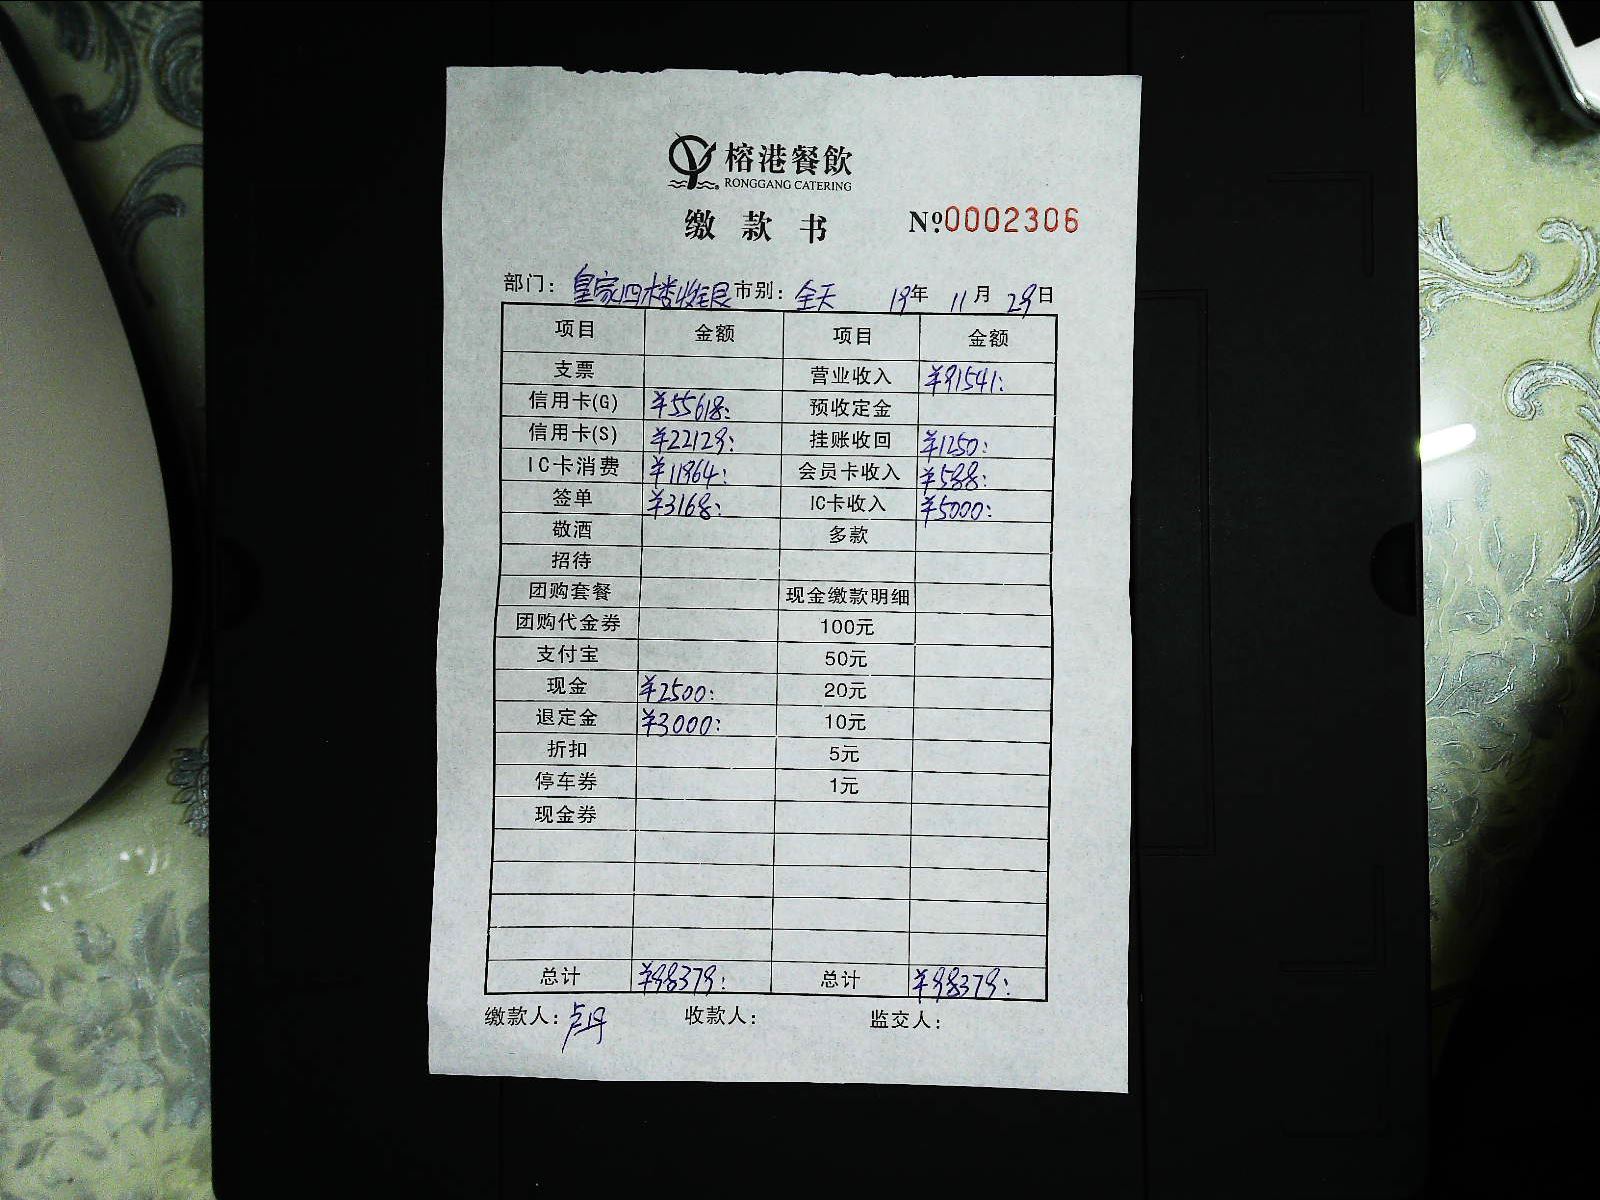 榕港餐飲
RONGGANG CATERING
缴款书 №0002306
部门：皇家四楼收银 市别：全天 19年 11月 29日
项目 金额 项目 金额
支票 营业收入 ¥91541:
信用卡(G) ¥55618: 预收定金
信用卡(S) ¥22129: 挂账收回 ¥1250:
IC卡消费 ¥11964: 会员卡收入 ¥588:
签单 ¥3168: IC卡收入 ¥5000:
敬酒 多款
招待
团购套餐 现金缴款明细
团购代金券 100元
支付宝 50元
现金 ¥2500: 20元
退定金 ¥3000: 10元
折扣 5元
停车券 1元
现金券
总计 ¥98379: 总计 ¥98379:
缴款人：卢丹 收款人： 监交人：